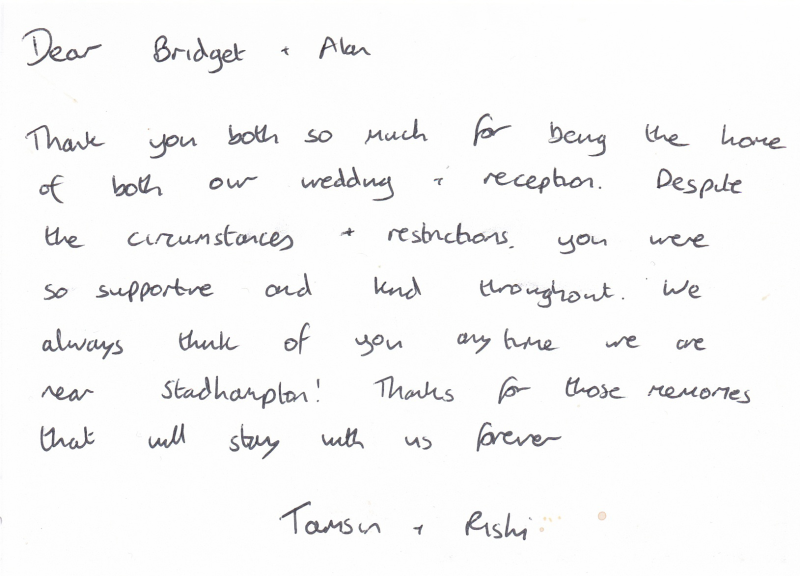 Dear Bridget + Alan
Thank you both so much for being the home
of both our wedding + reception. Despite
the circumstances + restrictions, you were
so supportive and kind throughout. We
always think of you any time we are
near Stadhampton! Thanks for those memories
that will stay with us forever
Tamsin + Rishi